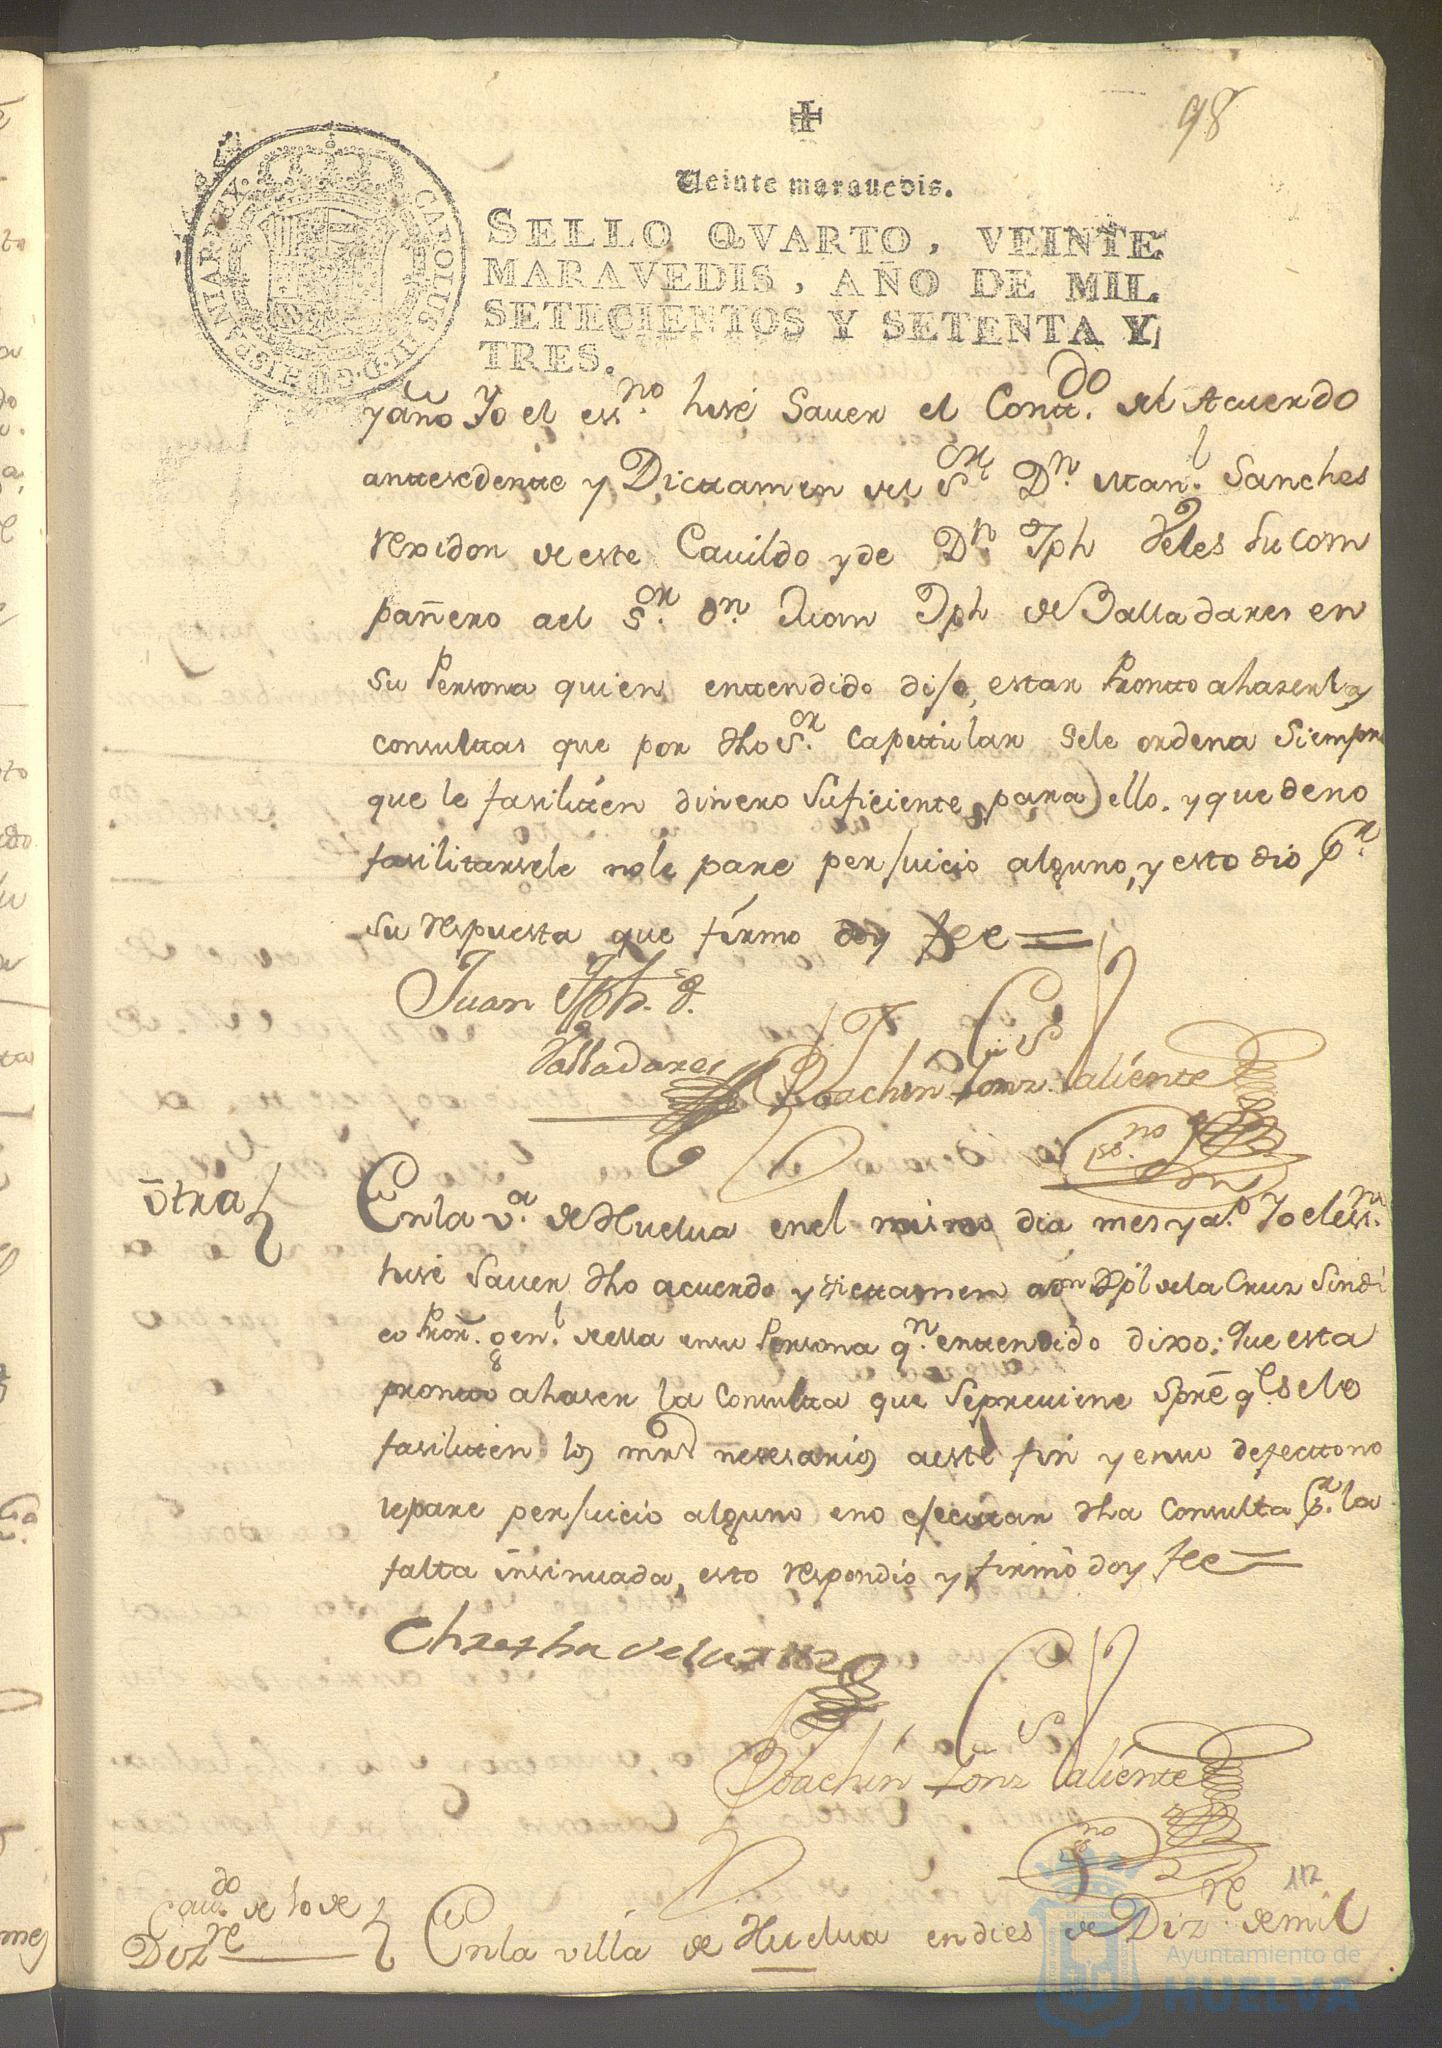 98
Veinte maravedis.
SELLO QVARTO, VEINTE
MARAVEDIS, AÑO DE MIL
SETECIENTOS Y SETENTA Y
TRES.
CAROLUS III D.G. HISPANIAR. REX
y año Yo el es.no hisé Saver el Cont.do del Acuerdo
antesedente y Dictamen del S.or D.n Man.l Sanches
rexidor de este Cavildo y de D.n Jph Veles su com
pañero al S.or d.n Juan Jph de Balladares en
su Persona quien entendido dijo, estar Prontto a haser las
consultas que por dho S.or Capittular Sele ordena Siempre
que le fasilitén dinero Suficiente para ello. y que de no
fasilitarsele no le pare perjuicio alguno, y esto dio p.r
su respuesta que firmo doy fee =
Juan Jph. d.
Valladares
Joachin Gonz. Valiente
es.no
otra
En la v.a de Huelva en el mismo dia mes y a.o Yo el es.no
hisé Saver dho acuerdo y dictamen a d.n Xpl de la Cruz Sindi
co Pror. gen.l de ella en su Persona q.n entendido dixo: Que esta
prontto a haser la Consulta que se previene Spré q.e se le
fasilitén los mrs nesesarios a este fin y en su defectto no
le pare perjuicio alguno en o ejecutar dha Consulta p.r la
falta insinuada, esto respondió y firmó doy fee =
de la Cruz
Joachin Gonz Valiente
es.no
112
Cav.do de 10 de
Diz.re
En la villa de Huelva en dies de Diz.re de mil
Ayuntamiento de
HUELVA